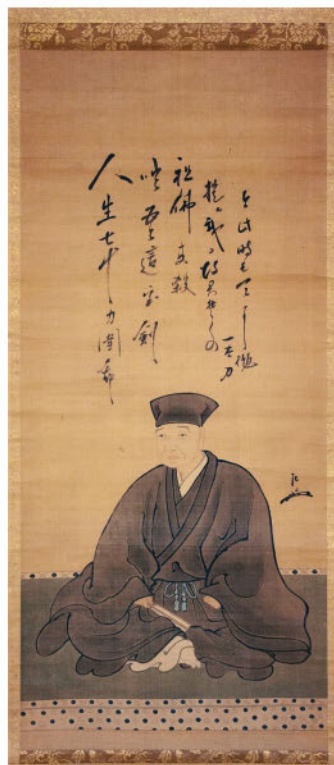 人生七十力圍希
咄吾這宝剣
祖佛共殺
提ル我得具足の
一太刀
今此時そ天に抛